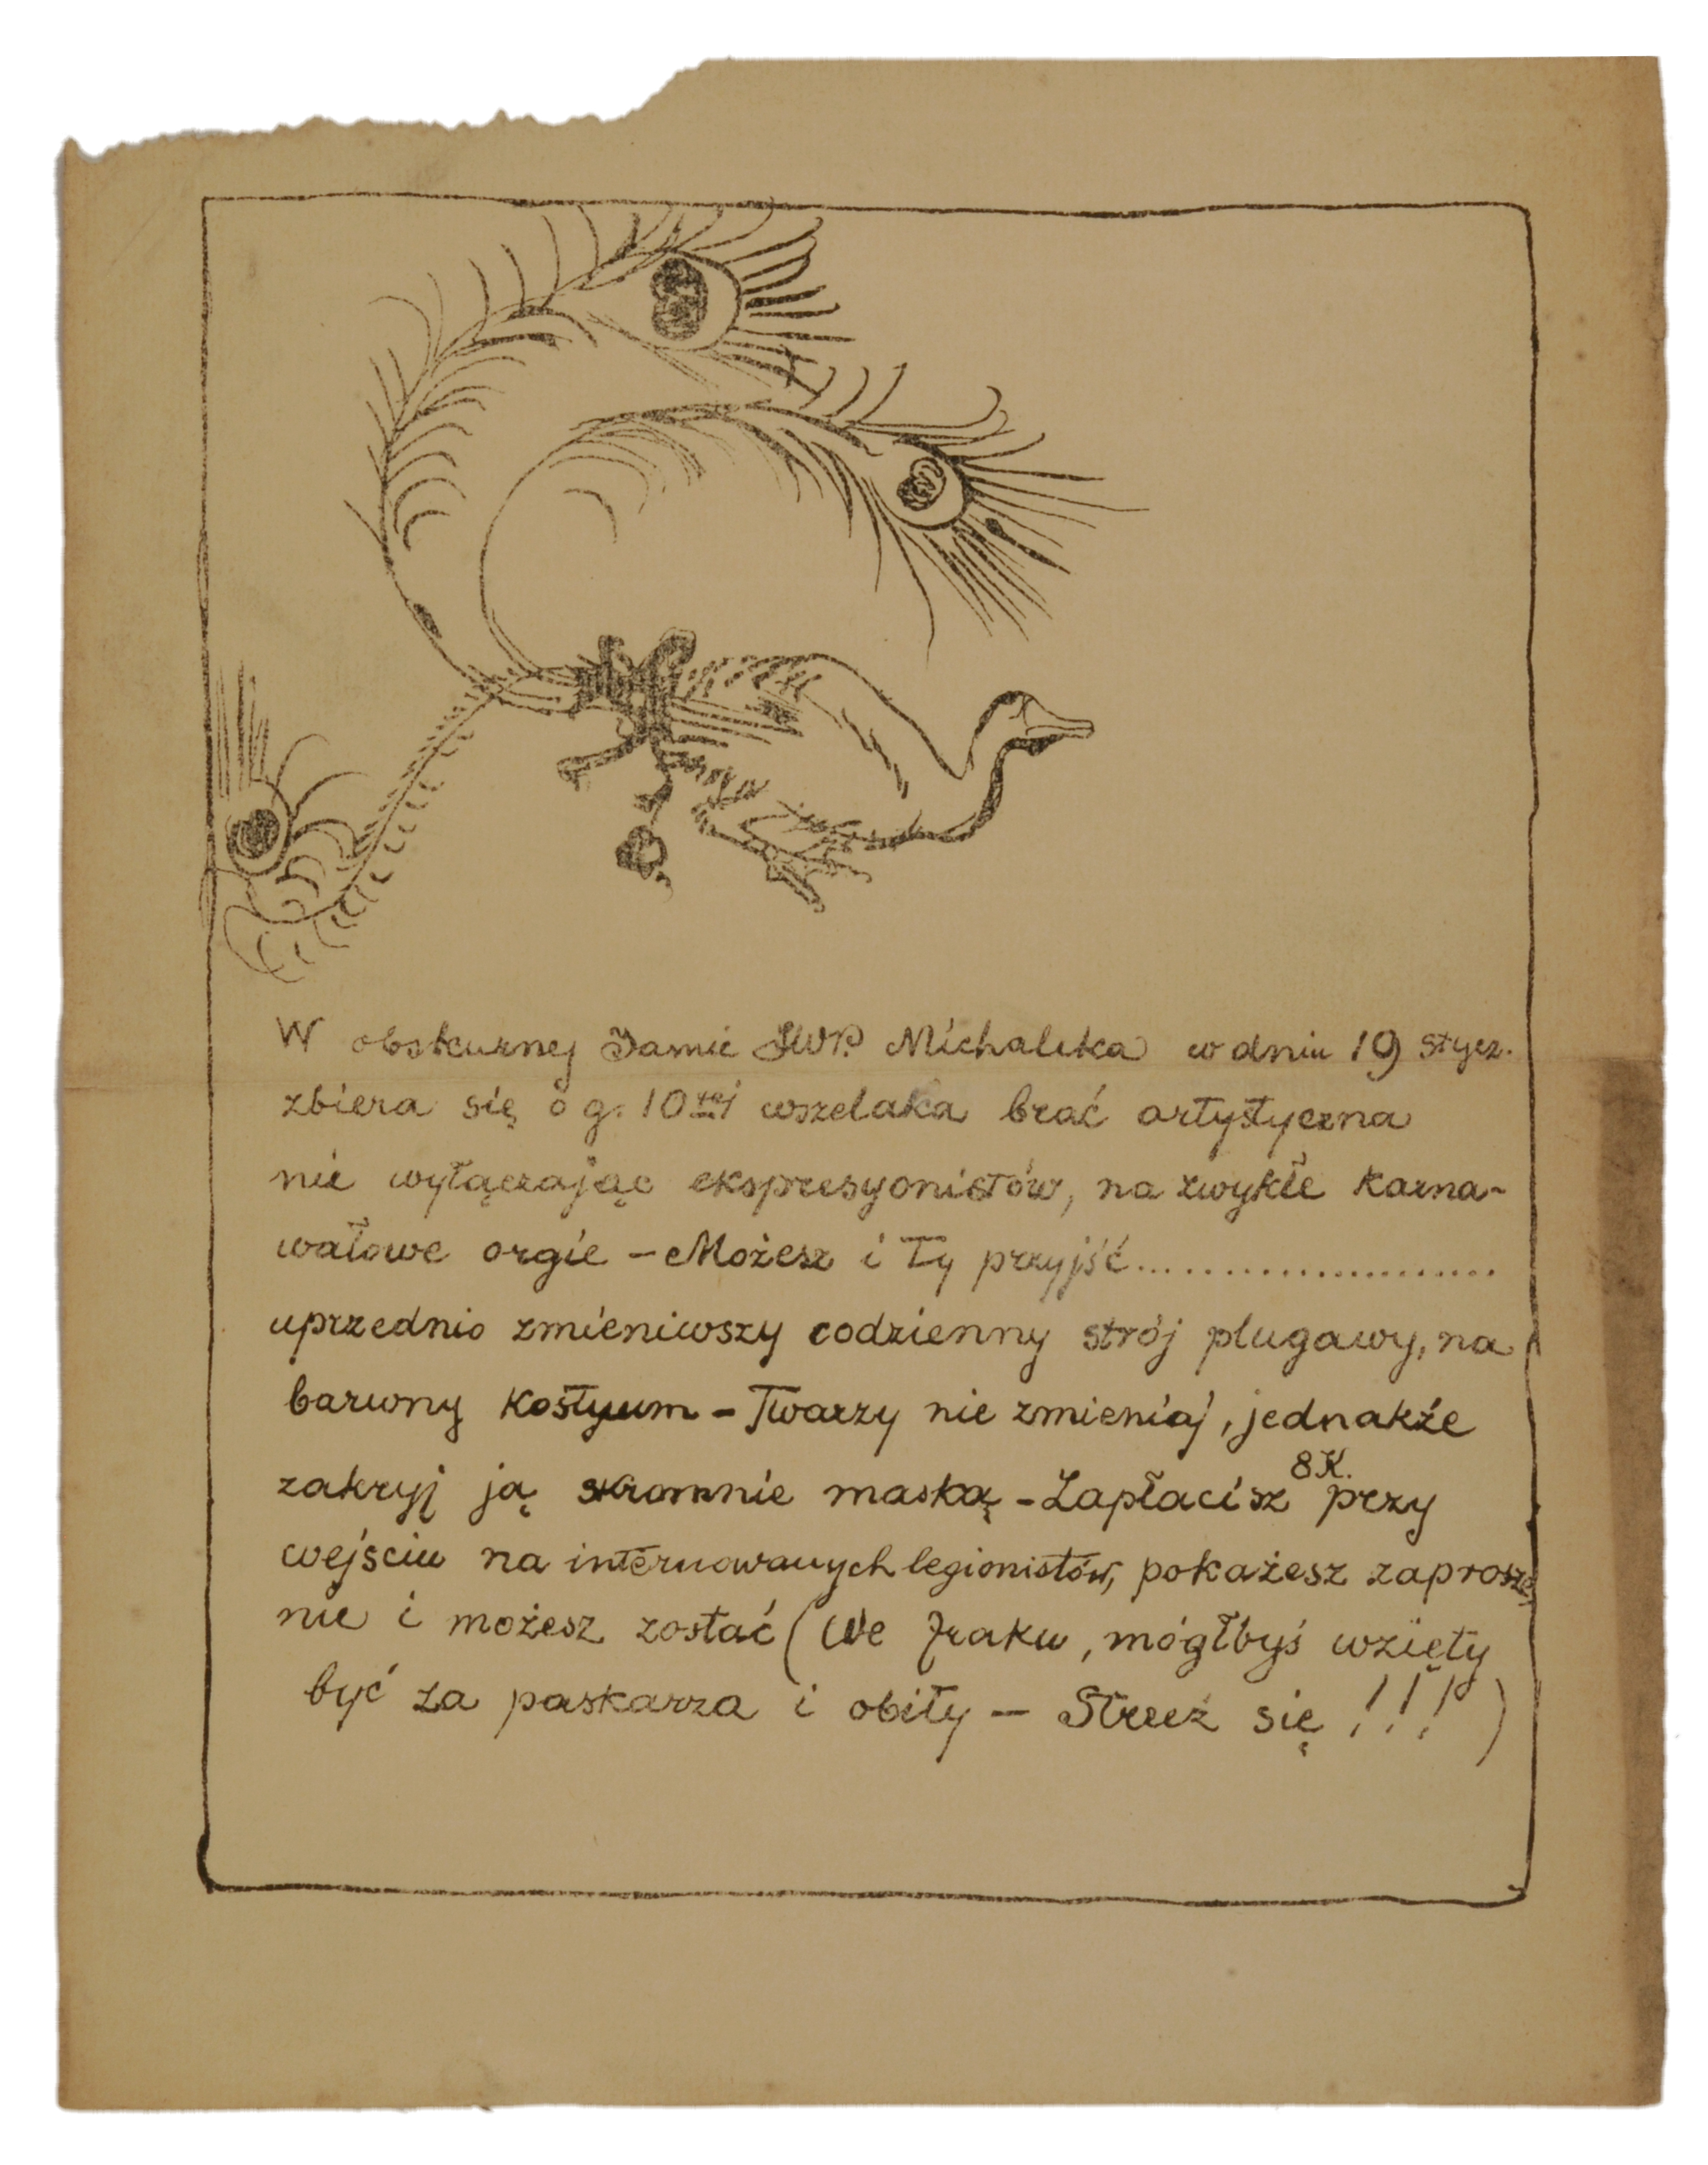 W obskurnej Jamie JWP. Michalika w dniu 19 stycz.
zbiera się o g. 10tej wszelaka brać artystyczna
nie wyłączając ekspresyonistów, na zwykłe karna-
wałowe orgie – Możesz i Ty przyjść......................
uprzednio zmieniwszy codzienny strój plugawy, na
barwny kostyum – Twarzy nie zmieniaj, jednakże
zakryj ją skromnie maską – Zapłacisz 8 K. przy
wejściu na internowanych legionistów, pokażesz zaprosze-
nie i możesz zostać (We fraku, mógłbyś wzięty
być za paskarza i obity – Strzeż się !!! )